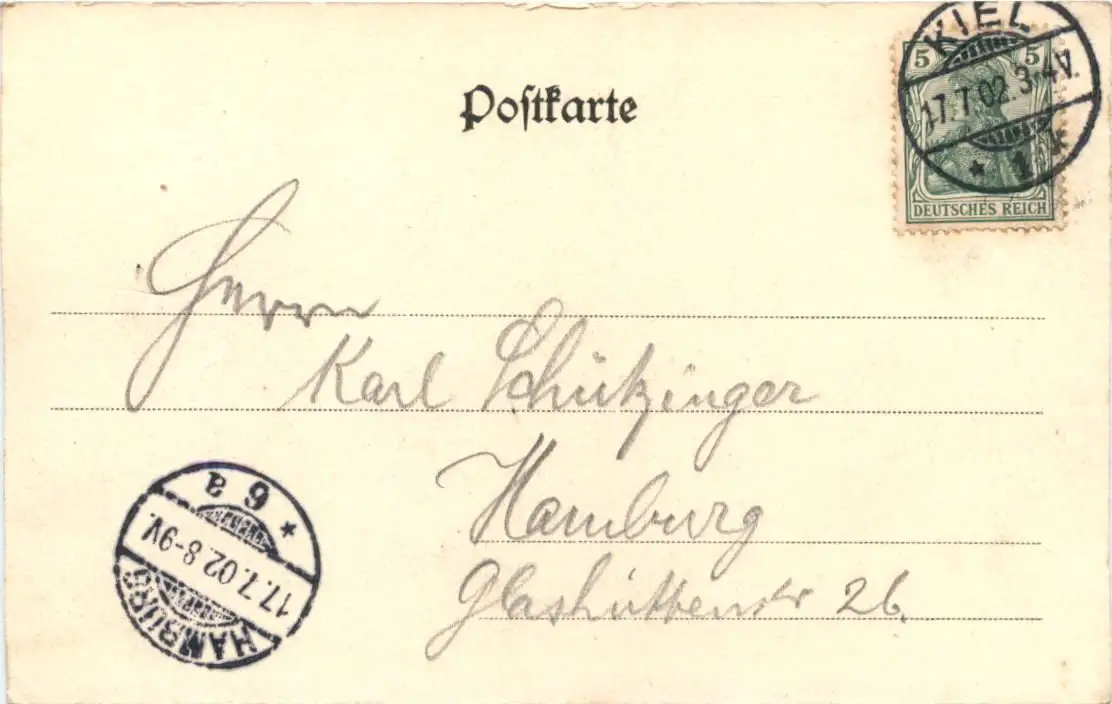 Postkarte
KIEL
17.7.02.3-4V.
* 1 k
5 5
DEUTSCHES REICH
Herrn
Karl Schützinger
Hamburg
Glashüttenstr 26.
HAMBURG
17.7.02.8-9V.
* 6 a